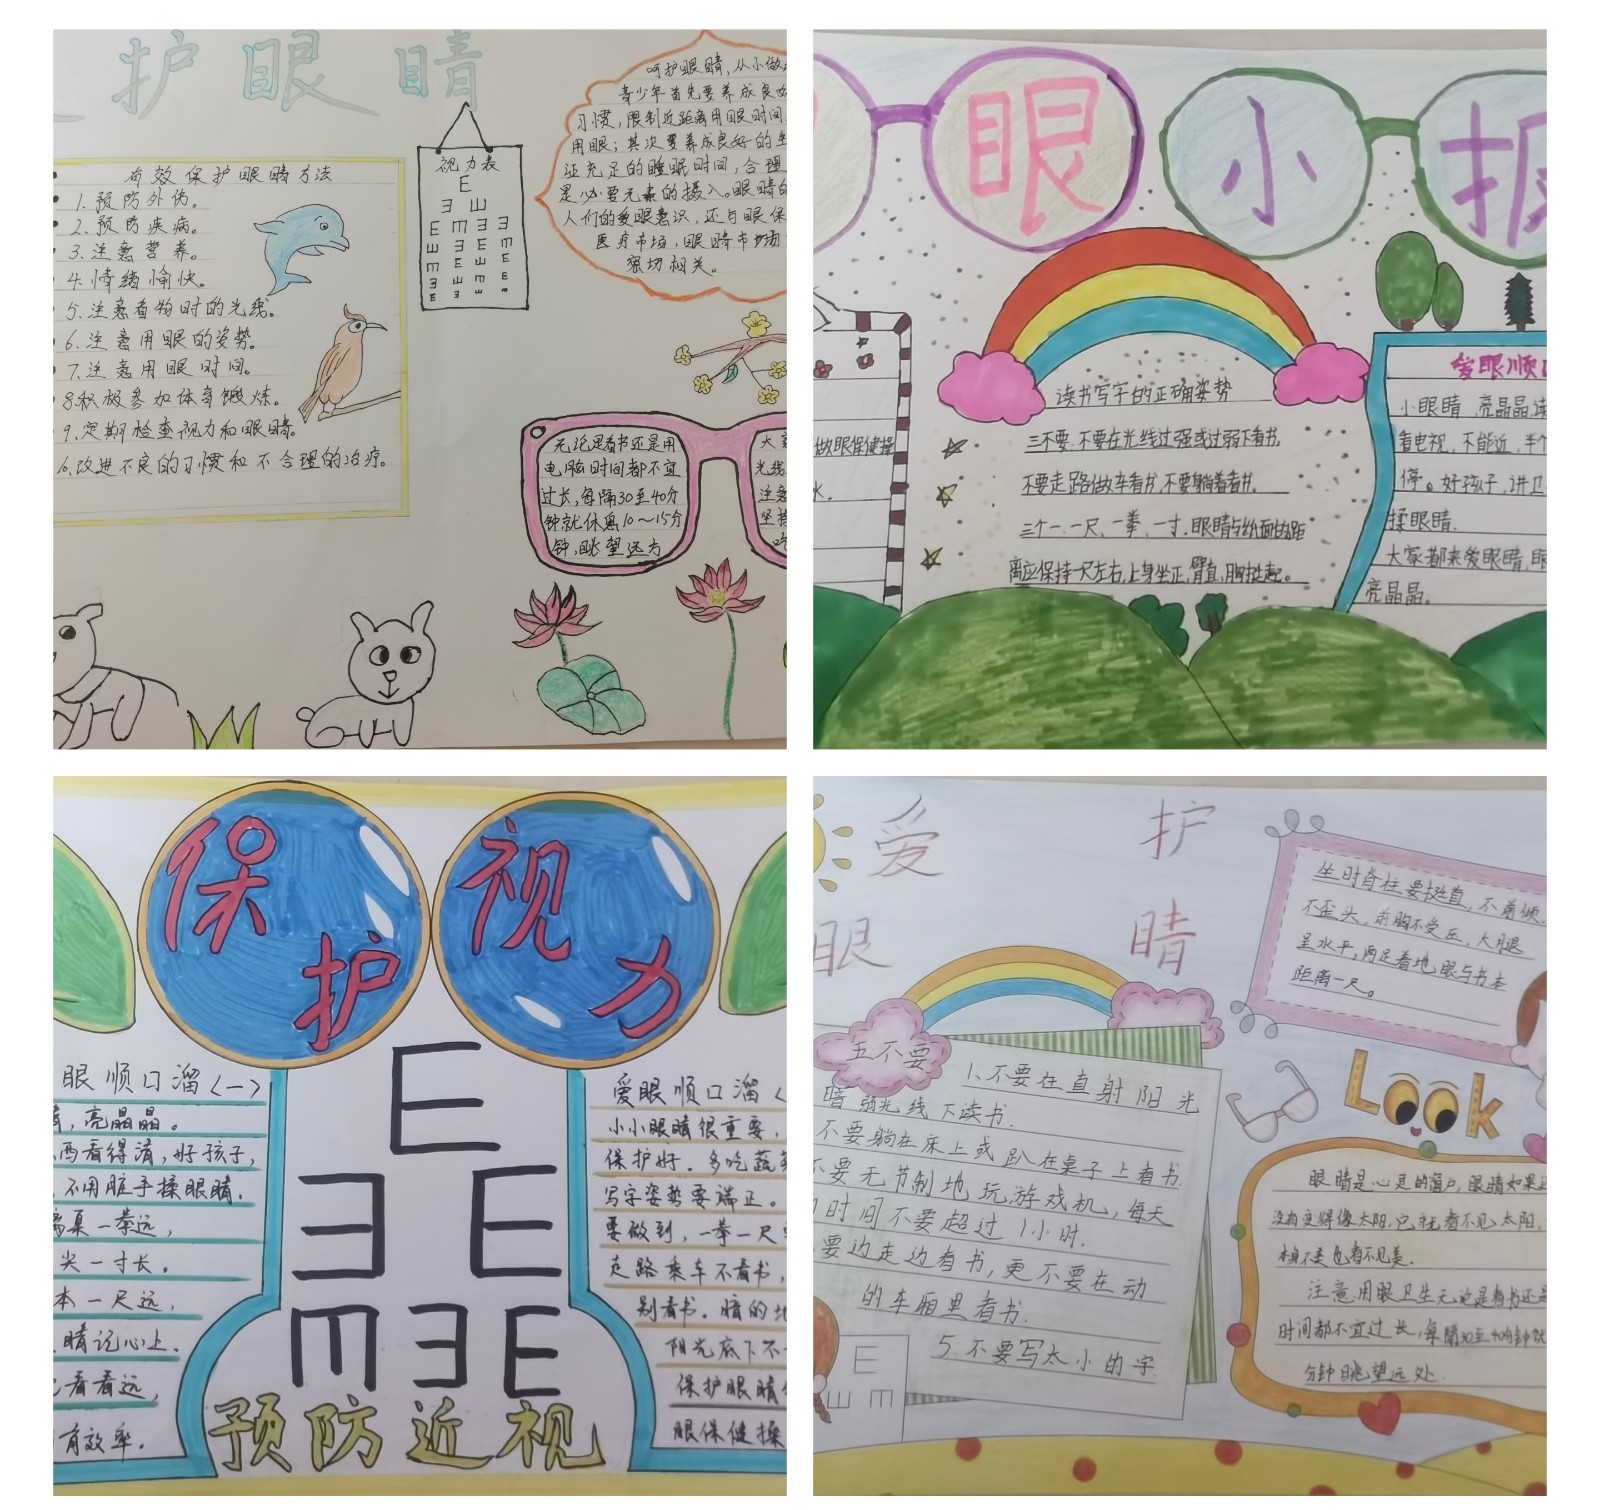 护眼睛
有效保护眼睛方法
1.预防外伤。
2.预防疾病。
3.注意营养。
4.情绪愉快。
5.注意看物时的光线。
6.注意用眼的姿势。
7.注意用眼时间。
8积极参加体育锻炼。
9.定期检查视力和眼睛。
改进不良的习惯和不合理的治疗。
视力表
E
呵护眼睛,从小做
青少年首先要养成良好
习惯,限制近距离用眼时间
用眼;其次要养成良好的生
证充足的睡眠时间,合理
是必要元素的摄入。眼睛的
人们的爱眼意识,还与眼保
医疗市场,眼睛市场
密切相关。
无论是看书还是用
电脑时间都不宜
过长,每隔30至40分
钟就休息10~15分
钟,眺望远方
大
光线
注意
坚持
吃
眼小
做眼保健操
水。
读书写字的正确姿势
三不要:不要在光线过强或过弱下看书,
不要走路做车看书,不要躺着看书。
三个一:一尺、一拳、一寸.眼睛与纸面的距
离应保持一尺左右,上身坐正,臂直,胸挺起。
爱眼顺口
小眼睛 亮晶晶,读
看电视,不能近,半个
停。好孩子,讲卫
揉眼睛.
大家都来爱眼睛,眼
亮晶晶。
保护视力
眼顺口溜<一>
睛,亮晶晶。
两看得清,好孩子,
不用脏手揉眼睛.
离桌一拳远,
尖一寸长。
本一尺远,
睛记心上.
看看远,
有效率.
E
E E
E E E
预防近视
爱眼顺口溜<
小小眼睛很重要,
保护好.多吃蔬菜
写字姿势要端正。
要做到,一拳一尺
走路乘车不看书,
别看书.暗的地
阳光底下不
保护眼睛
眼保健操
爱护
眼睛
坐时脊柱要挺直,不前倾.
不歪头,前胸不受压,大腿
呈水平,两足着地眼与书本
距离一尺。
五不要
1.不要在直射阳光
暗弱光线下读书.
不要躺在床上或趴在桌子上看书.
不要无节制地玩游戏机,每天
时间不要超过1小时.
要边走边看书,更不要在动
的车厢里看书.
5.不要写太小的字
E
Look
眼睛是心灵的窗户,眼睛如果还
没有变得像太阳,它就看不见太阳,
本身不美也看不见美.
注意用眼卫生无论是看书还是
时间都不宜过长,每隔30至40分钟就
分钟眺望远处.